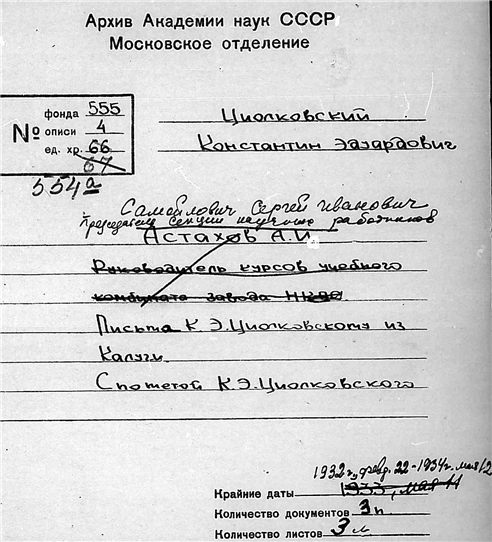 Архив Академии наук СССР
Московское отделение
№
фонда 555
описи 4
ед. хр. 66
67
554а
Циолковский
Константин Эдуардович
Самойлович Сергей Иванович
Председатель секции научных работников
Астахов А.И
Руководитель курсов учебного
комбината завода
Письма К.Э.Циолковскому из
Калуги
С пометой К.Э.Циолковского
1932г., февр. 22-1934г. мая 12
Крайние даты 1933, мая 11
Количество документов 3п
Количество листов 3л